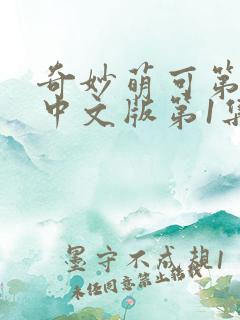 奇妙萌可第
中文版第1集
墨守不成规1
未任同意禁止转载